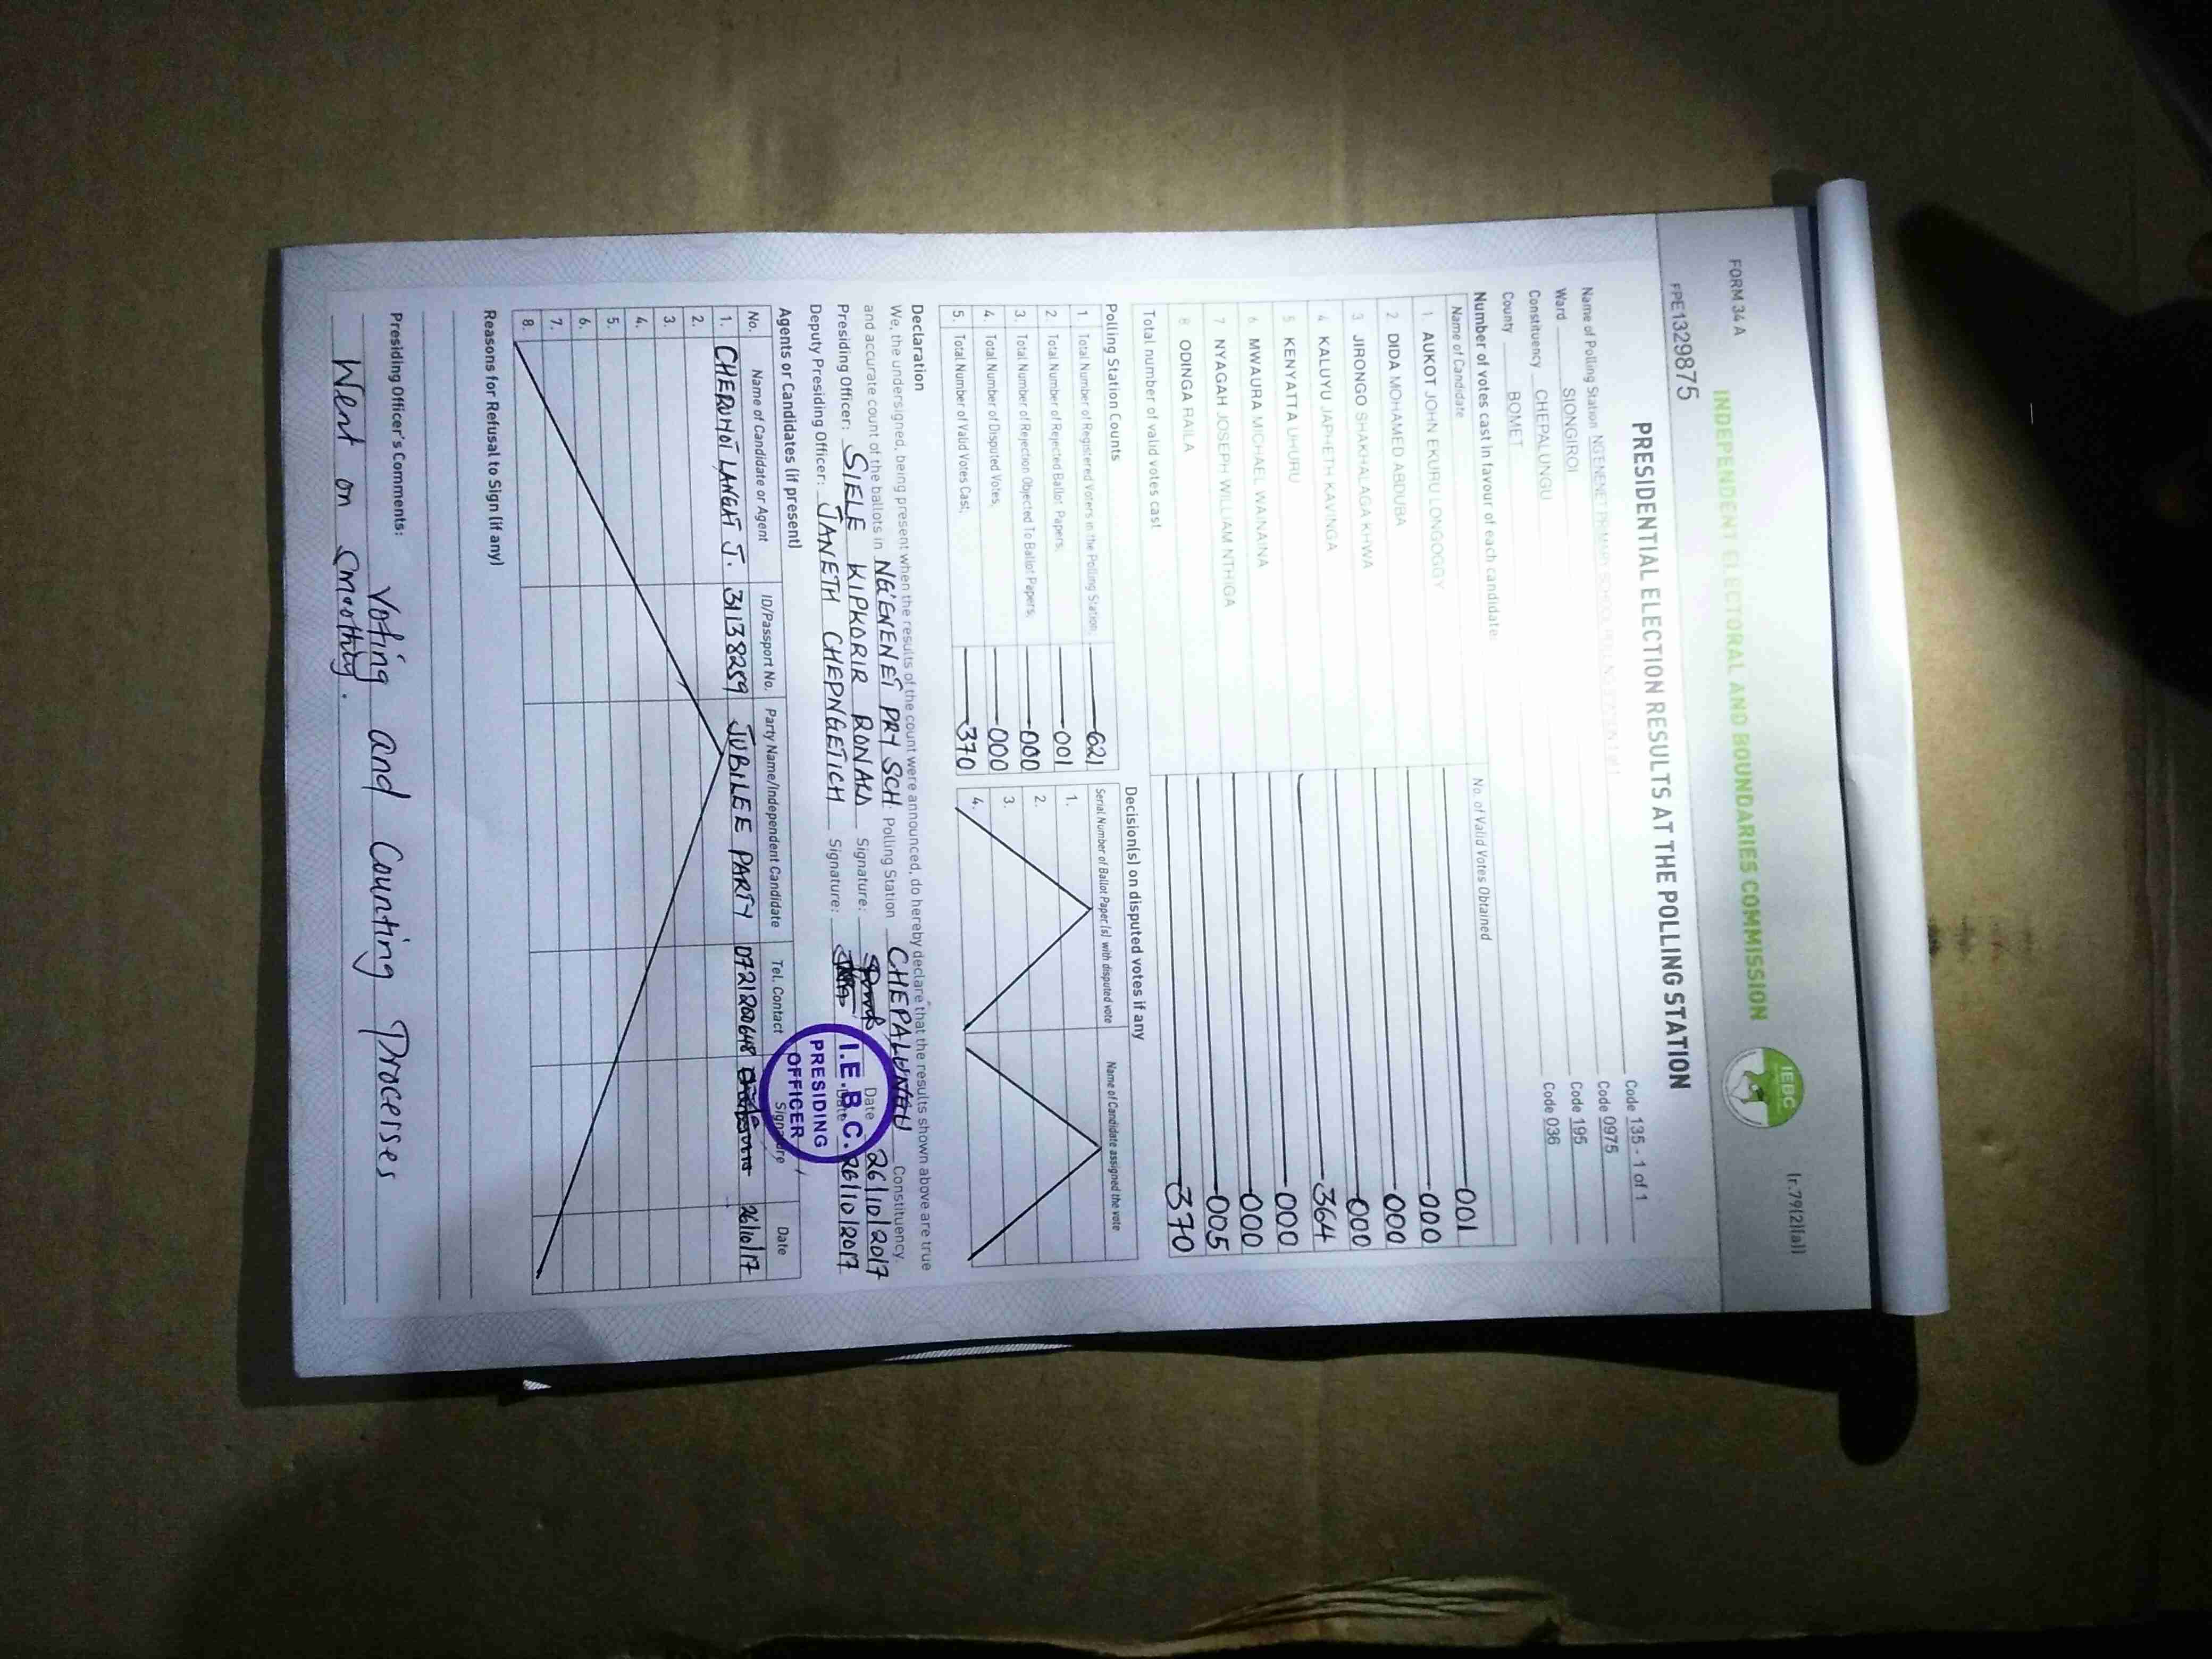 FORM 34 A
(r.79(2)(a))
INDEPENDENT ELECTORAL AND BOUNDARIES COMMISSION
IEBC
FPE1329875
PRESIDENTIAL ELECTION RESULTS AT THE POLLING STATION
Name of Polling Station NG'ENENET PRIMARY SCHOOL Code 135 - 1 of 1
Ward SIONGIROI Code 0975
Constituency CHEPALUNGU Code 195
County BOMET Code 036
Number of votes cast in favour of each candidate:
Name of Candidate No. of Valid Votes Obtained
1. AUKOT JOHN EKURU LONGOGGY 001
2 DIDA MOHAMED ABDUBA 000
3. JIRONGO SHAKHALAGA KHWA 000
4 KALUYU JAPHETH KAVINGA 000
5 KENYATTA UHURU 364
6 MWAURA MICHAEL WAINAINA 000
7 NYAGAH JOSEPH WILLIAM NTHIGA 000
8 ODINGA RAILA 005
Total number of valid votes cast 370
Polling Station Counts
1 Total Number of Registered Voters in the Polling Station: 621
2. Total Number of Rejected Ballot Papers; 001
3. Total Number of Rejection Objected To Ballot Papers; 000
4. Total Number of Disputed Votes; 000
5. Total Number of Valid Votes Cast; 370
Decision(s) on disputed votes if any
Serial Number of Ballot Paper(s) with disputed vote Name of Candidate assigned the vote
1.
2.
3.
4.
Declaration
We, the undersigned, being present when the results of the count were announced, do hereby declare that the results shown above are true
and accurate count of the ballots in NG'ENENET PRY SCH. Polling Station CHEPALUNGU Constituency.
Presiding Officer: SIELE KIPKORIR RONARD Signature: Date 26/10/2017
Deputy Presiding Officer: JANETH CHEPNGETICH Signature: Date 26/10/2017
I.E.B.C.
PRESIDING
OFFICER
Agents or Candidates (if present)
No. Name of Candidate or Agent ID/Passport No. Party Name/Independent Candidate Tel. Contact Signature Date
1. CHERUIYOT LANGAT J. 31138259 JUBILEE PARTY 0721200648 26/10/17
2.
3.
4.
5.
6.
7.
8.
Reasons for Refusal to Sign (if any)
Presiding Officer's Comments: Voting and Counting Procerses
Went on Smoothly.